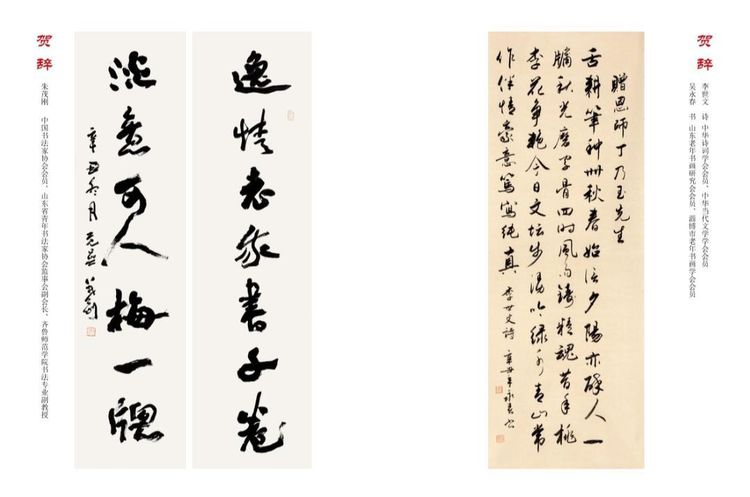 贺辞
李世文 诗 中华诗词学会会员、中华当代文学学会会员
吴永春 书 山东老年书画研究会会员、淄博市老年书画学会会员
贈恩师丁乃玉先生
舌耕筆种卅秋春始信夕陽亦醉人一
牖秋光磨字骨四时风雨铸精魂昔年桃
李花争艳今日文坛步漫吟绿水青山常
作伴情豪意笃寫纯真 李世文诗 辛丑 永春书
逸情老我書千卷
淡意可人梅一牕
辛丑冬月 茂刚
贺辞
朱茂刚 中国书法家协会会员、山东省青年书法家协会监事会副会长、齐鲁师范学院书法专业副教授